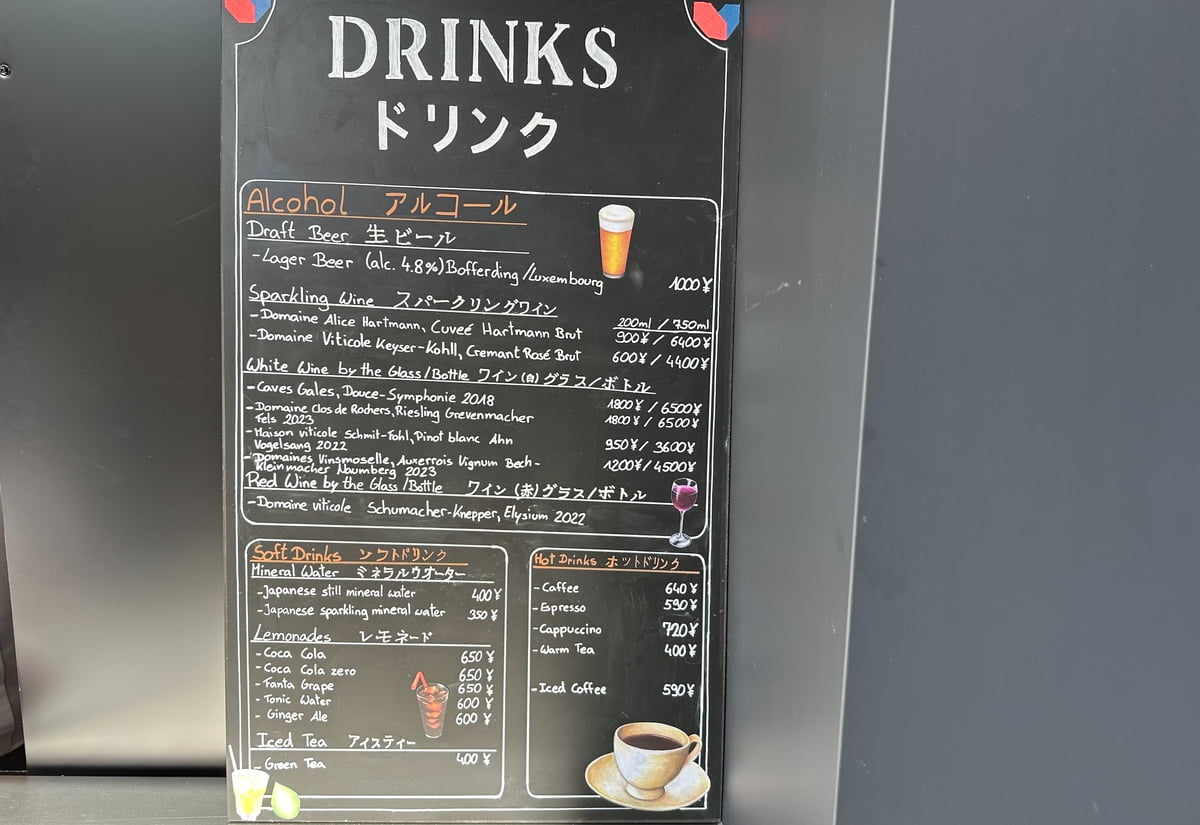 DRINKS
ドリンク
Alcohol アルコール
Draft Beer 生ビール
-Lager Beer (alc. 4.8%) Bofferding/Luxembourg 1000¥
Sparkling Wine スパークリングワイン
200ml / 750ml
-Domaine Alice Hartmann, Cuveé Hartmann Brut 900¥ / 6400¥
-Domaine Viticole Keyser-Kohll, Cremant Rosé Brut 600¥ / 4400¥
White Wine by the Glass/Bottle ワイン(白)グラス/ボトル
-Caves Gales, Douce-Symphonie 2018 1800¥ / 6500¥
-Domaine Clos de Rochers, Riesling Grevenmacher 1800¥ / 6500¥
Fels 2023
-Maison viticole Schmit-Fohl, Pinot blanc Ahn
Vogelsang 2022 950¥ / 3600¥
-Domaines Vinsmoselle, Auxerrois Vignum Bech- 1200¥/4500¥
Kleinmacher Naumberg 2023
Red Wine by the Glass/Bottle ワイン(赤)グラス/ボトル
-Domaine viticole Schumacher-Knepper, Elysium 2022
Soft Drinks ソフトドリンク
Mineral Water ミネラルウオーター
-Japanese still mineral water 400¥
-Japanese sparkling mineral water 350¥
Lemonades レモネード
-Coca Cola 650¥
-Coca Cola zero 650¥
-Fanta Grape 650¥
-Tonic Water 600¥
-Ginger Ale 600¥
Iced Tea アイスティー
-Green Tea 400¥
Hot Drinks ホットドリンク
-Coffee 640¥
-Espresso 590¥
-Cappuccino 720¥
-Warm Tea 400¥
-Iced Coffee 590¥